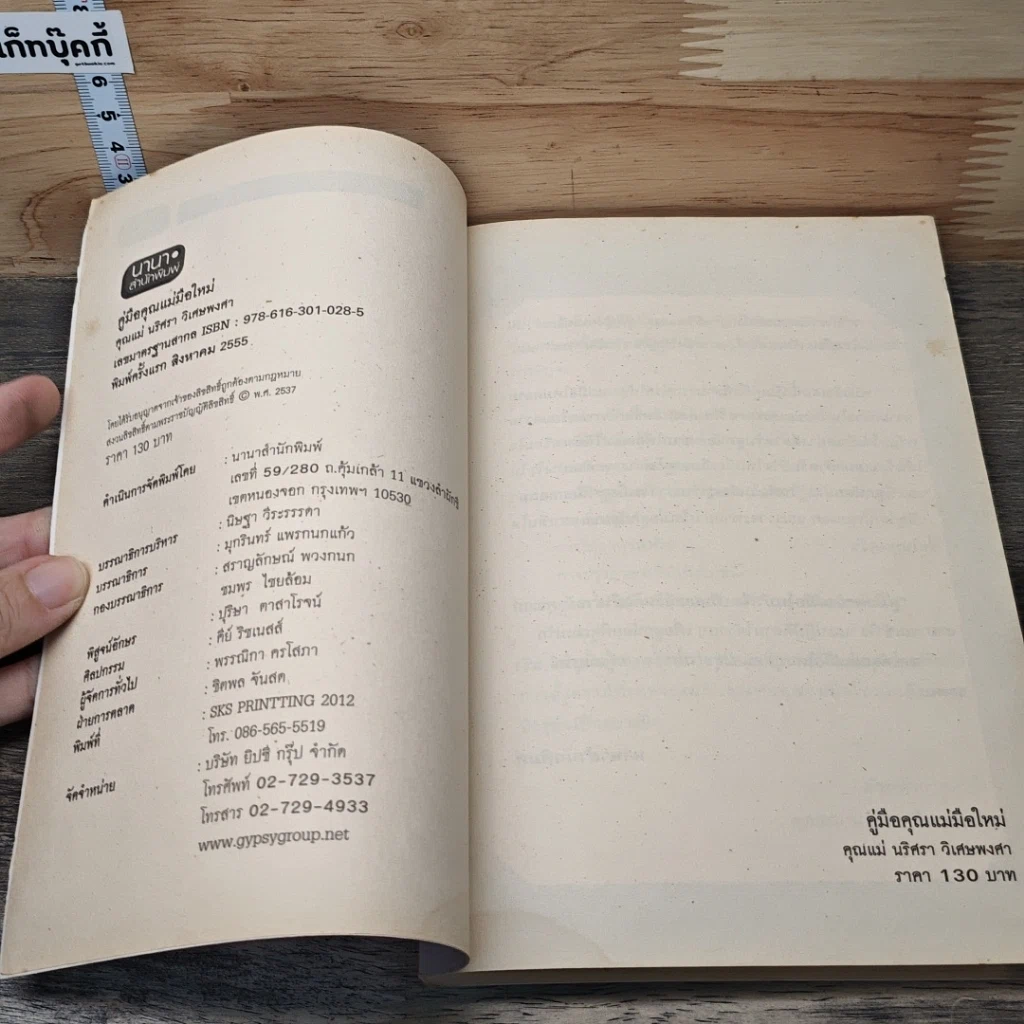 เก็ทบุ๊คกี้
6
5
4
3
นานา
สำนักพิมพ์
คู่มือคุณแม่มือใหม่
คุณแม่ นริศรา วิเศษพงศา
เลขมาตรฐานสากล ISBN : 978-616-301-028-5
พิมพ์ครั้งแรก สิงหาคม 2555
โดยได้รับอนุญาตจากเจ้าของลิขสิทธิ์ถูกต้องตามกฎหมาย
สงวนลิขสิทธิ์ตามพระราชบัญญัติลิขสิทธิ์ © พ.ศ. 2537
ราคา 130 บาท
ดำเนินการจัดพิมพ์โดย : นานาสำนักพิมพ์
เลขที่ 59/280 ถ.คุ้มเกล้า 11 แขวง
เขตหนองจอก กรุงเทพฯ 10530
บรรณาธิการบริหาร : นิษฐา วีระธรรดา
บรรณาธิการ : มุกรินทร์ แพรกนกแก้ว
กองบรรณาธิการ : สราญลักษณ์ พวงกนก
ชมพูร ไชยล้อม
พิสูจน์อักษร : ปุริษา ตาสาโรจน์
ศิลปกรรม : คีย์ ริชเนสส์
ผู้จัดการทั่วไป : พรรณิกา ครโสภา
ฝ่ายการตลาด : ชิตพล จันสด
พิมพ์ที่ : SKS PRINTTING 2012
โทร. 086-565-5519
จัดจำหน่าย : บริษัท ยิปซี กรุ๊ป จำกัด
โทรศัพท์ 02-729-3537
โทรสาร 02-729-4933
www.gypsygroup.net
คู่มือคุณแม่มือใหม่
คุณแม่ นริศรา วิเศษพงศา
ราคา 130 บาท